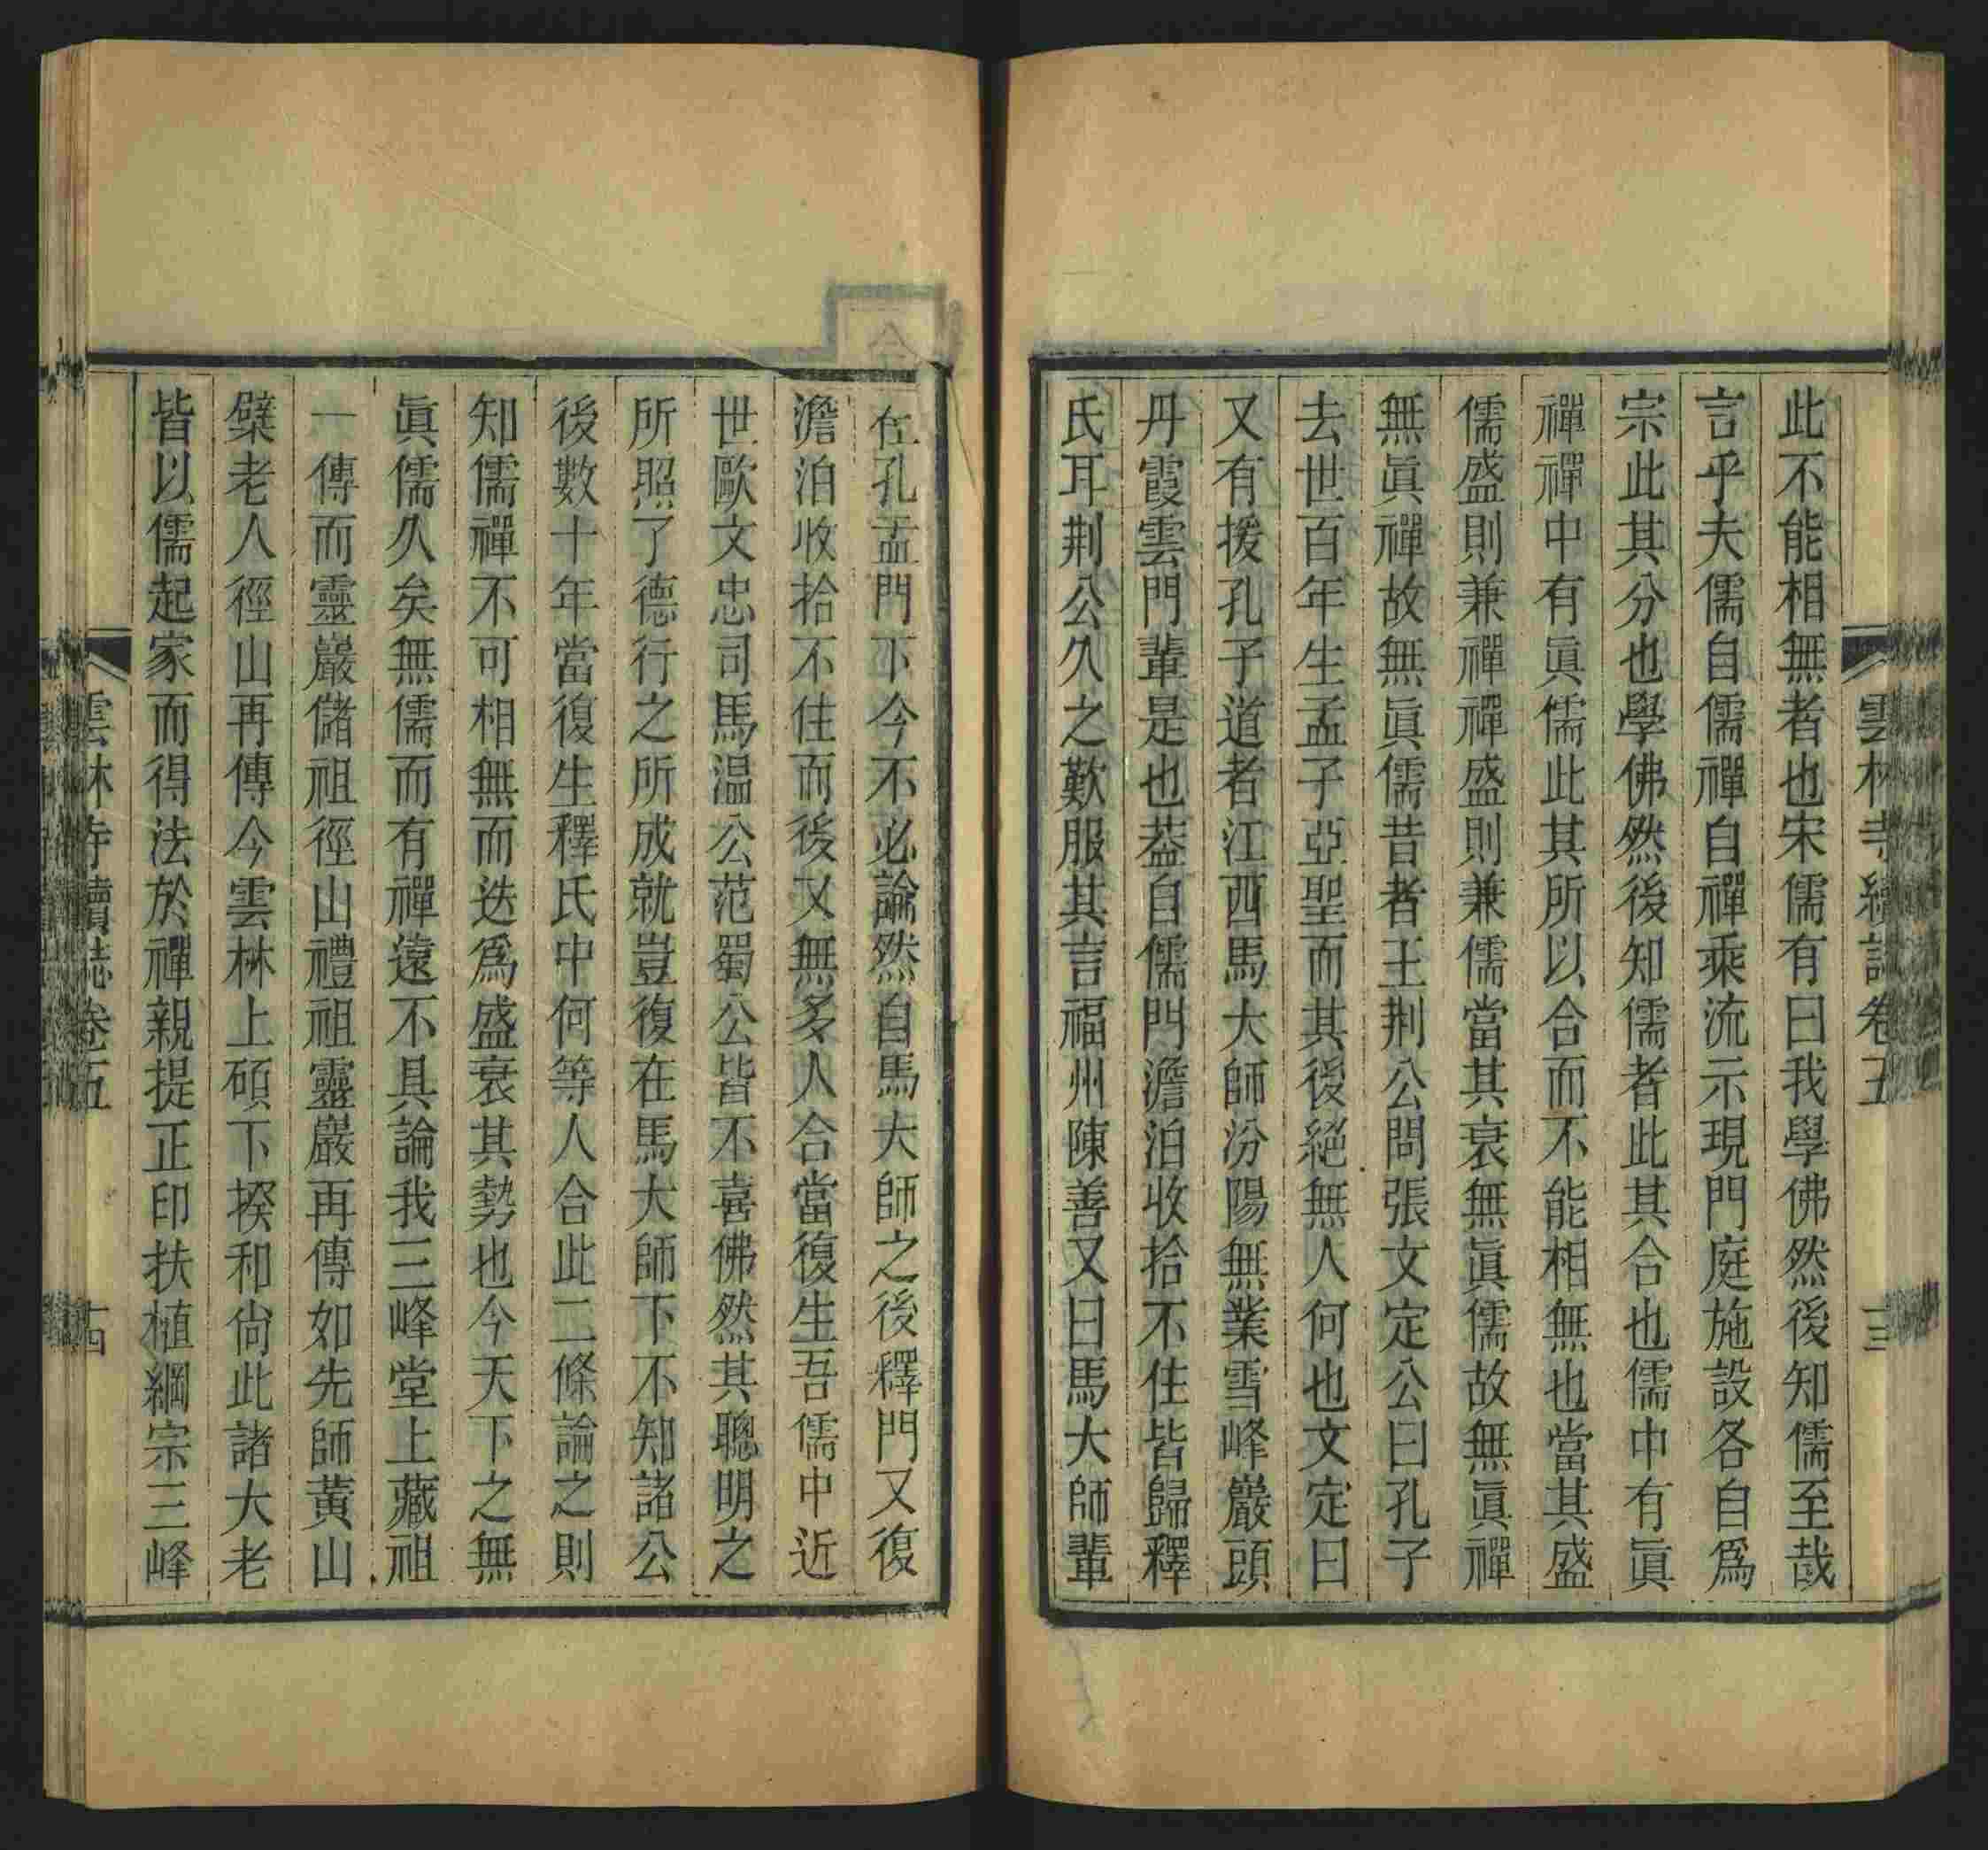 雲林寺續誌卷五
十三
此不能相無者也宋儒有曰我學佛然後知儒至哉
言乎夫儒自儒禪自禪乘流示現門庭施設各自爲
宗此其分也學佛然後知儒者此其合也儒中有眞
禪禪中有眞儒此其所以合而不能相無也當其盛
儒盛則兼禪禪盛則兼儒當其衰無眞儒故無眞禪
無眞禪故無眞儒昔者王荆公問張文定公曰孔子
去世百年生孟子亞聖而其後絕無人何也文定曰
又有援孔子道者江西馬大師汾陽無業雪峰巖頭
丹霞雲門輩是也葢自儒門澹泊收拾不住皆歸釋
氏耳荆公久之歎服其言福州陳善又曰馬大師輩
在孔孟門下今不必論然自馬大師之後釋門又復
澹泊收拾不住而後又無多人合當復生吾儒中近
世歐文忠司馬温公范蜀公皆不喜佛然其聰明之
所照了德行之所成就豈復在馬大師下不知諸公
後數十年當復生釋氏中何等人合此二條論之則
知儒禪不可相無而迭爲盛衰其勢也今天下之無
眞儒久矣無儒而有禪遠不具論我三峰堂上藏祖
一傳而靈巖儲祖徑山禮祖靈巖再傳如先師黃山
檗老人徑山再傳今雲林上碩下揆和尙此諸大老
皆以儒起家而得法於禪親提正印扶植綱宗三峰
雲林寺續誌卷五
十四